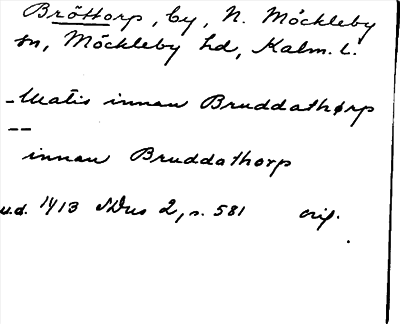 Bröttorp, by, N. Möckleby
sn, Möckleby hd, Kalm. l.
Matis innan Bruddathorp
--
innan Bruddathorp
u.d. 1413 SDns 2, s. 581 orig.